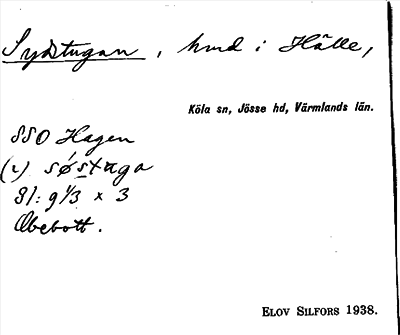 Sydstugan, hmd i Hälle,
Köla sn, Jösse hd, Värmlands län.
SSO Hagen
(2) søstuga
81: 9 1/3 x 3
Obebott.
ELOV SILFORS 1938.